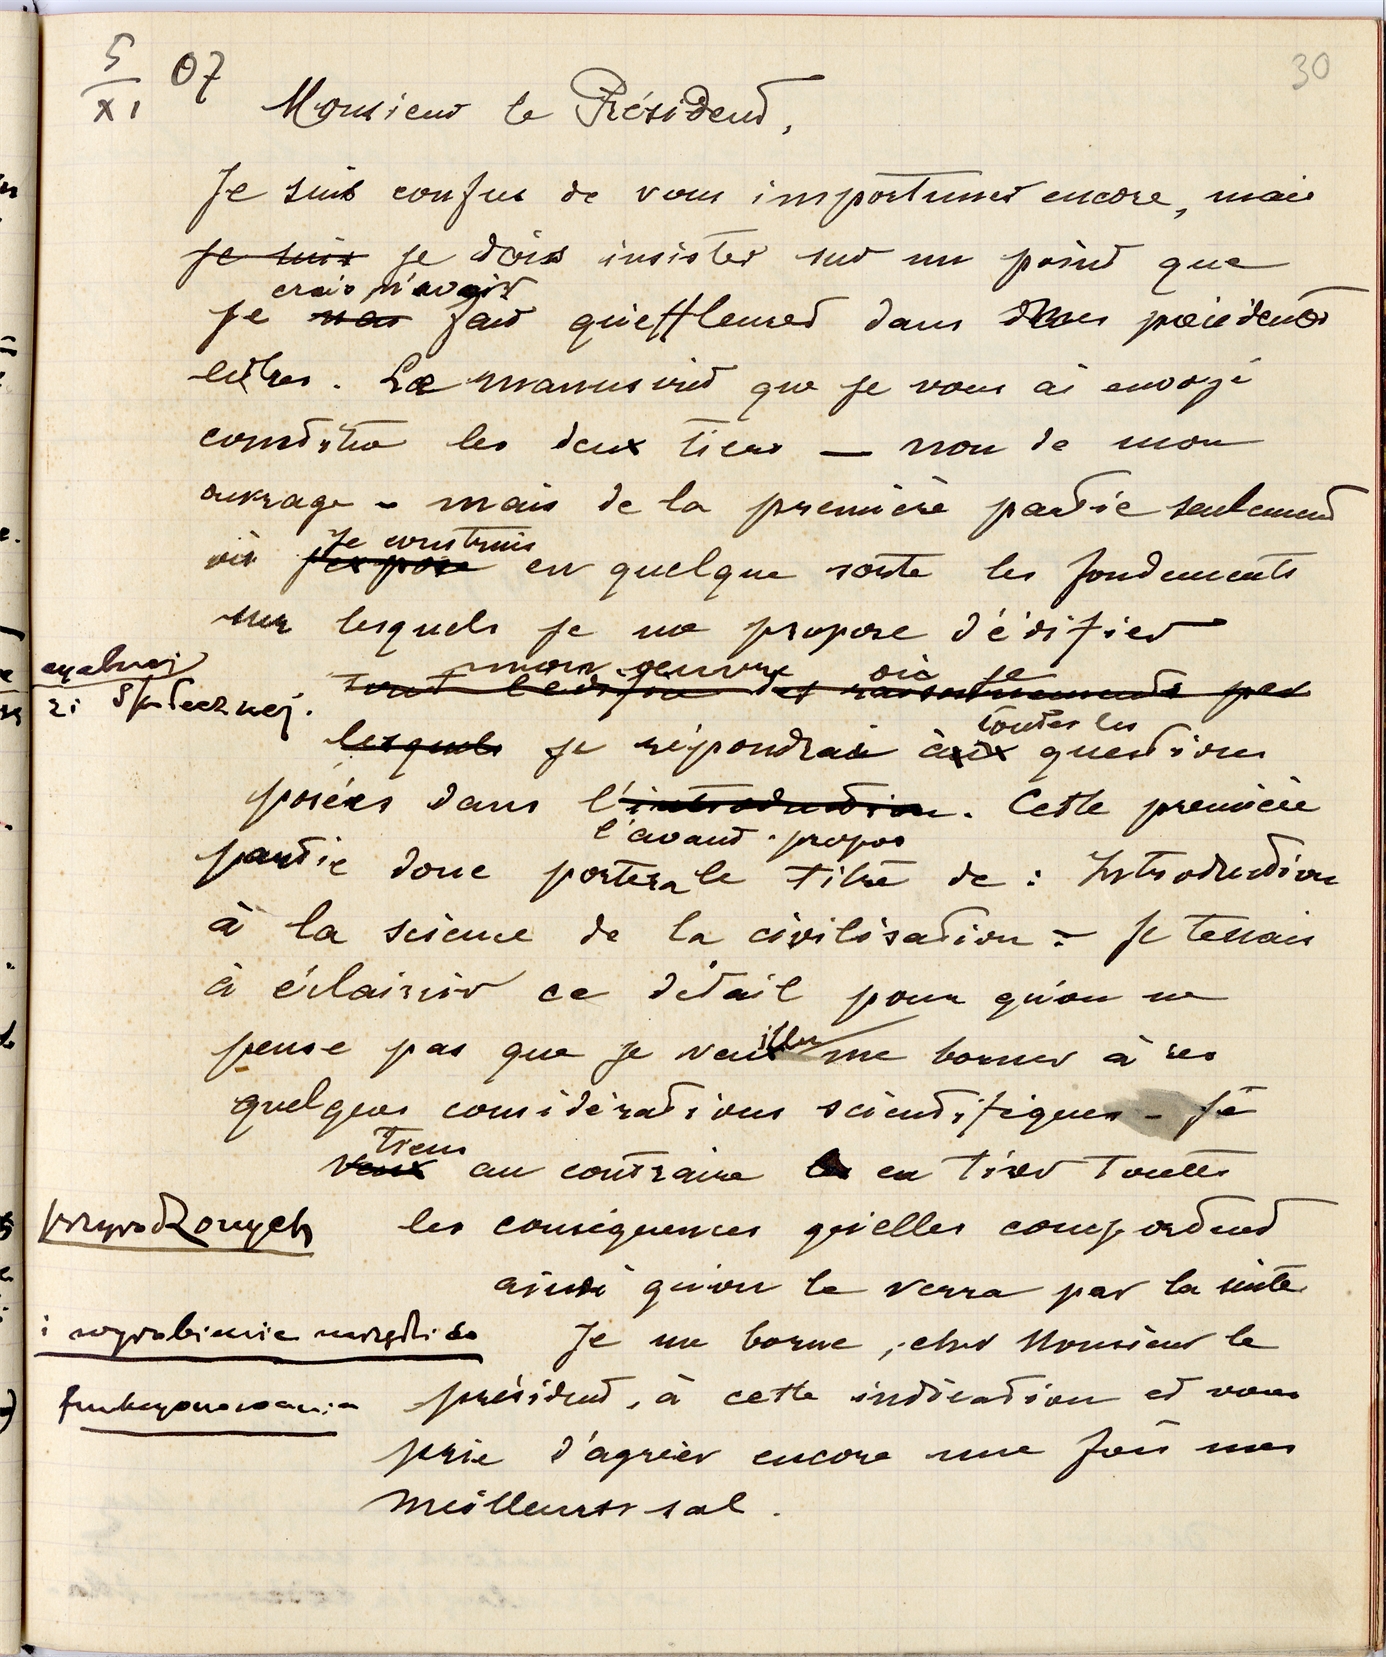 5/XI 07
30
Monsieur le Président,
Je suis confus de vous importuner encore, mais
je suis je dois insister sur un point que
crois n'avoir
je fait qu'effleurer dans mes précédentes
lettres. Le manuscrit que je vous ai envoyé
constitue les deux tiers — non de mon
ouvrage - mais de la première partie seulement
Je construis
où j'expose en quelque sorte les fondements
sur lesquels je me propose d'édifier
mon oeuvre où je
społecznej.
tout l'édifice des raisonnements par
toutes les
lesquels je répondrai aux questions
posées dans l'introduction. Cette première
l'avant-propos
partie donc portera le titre de : Introduction
à la science de la civilisation - Je tenais
à éclaircir ce détail pour qu'on ne
pense pas que je veuille me borner à ces
quelques considérations scientifiques - Je
tiens
veux au contraire en tirer toutes
przyrodzonych
les conséquences qu'elles comportent
ainsi qu'on le verra par la suite
i wyrobienie
Je me borne, cher Monsieur le
funkcyonowania
président, à cette indication et vous
prie d'agréer encore une fois mes
meilleurs sal.